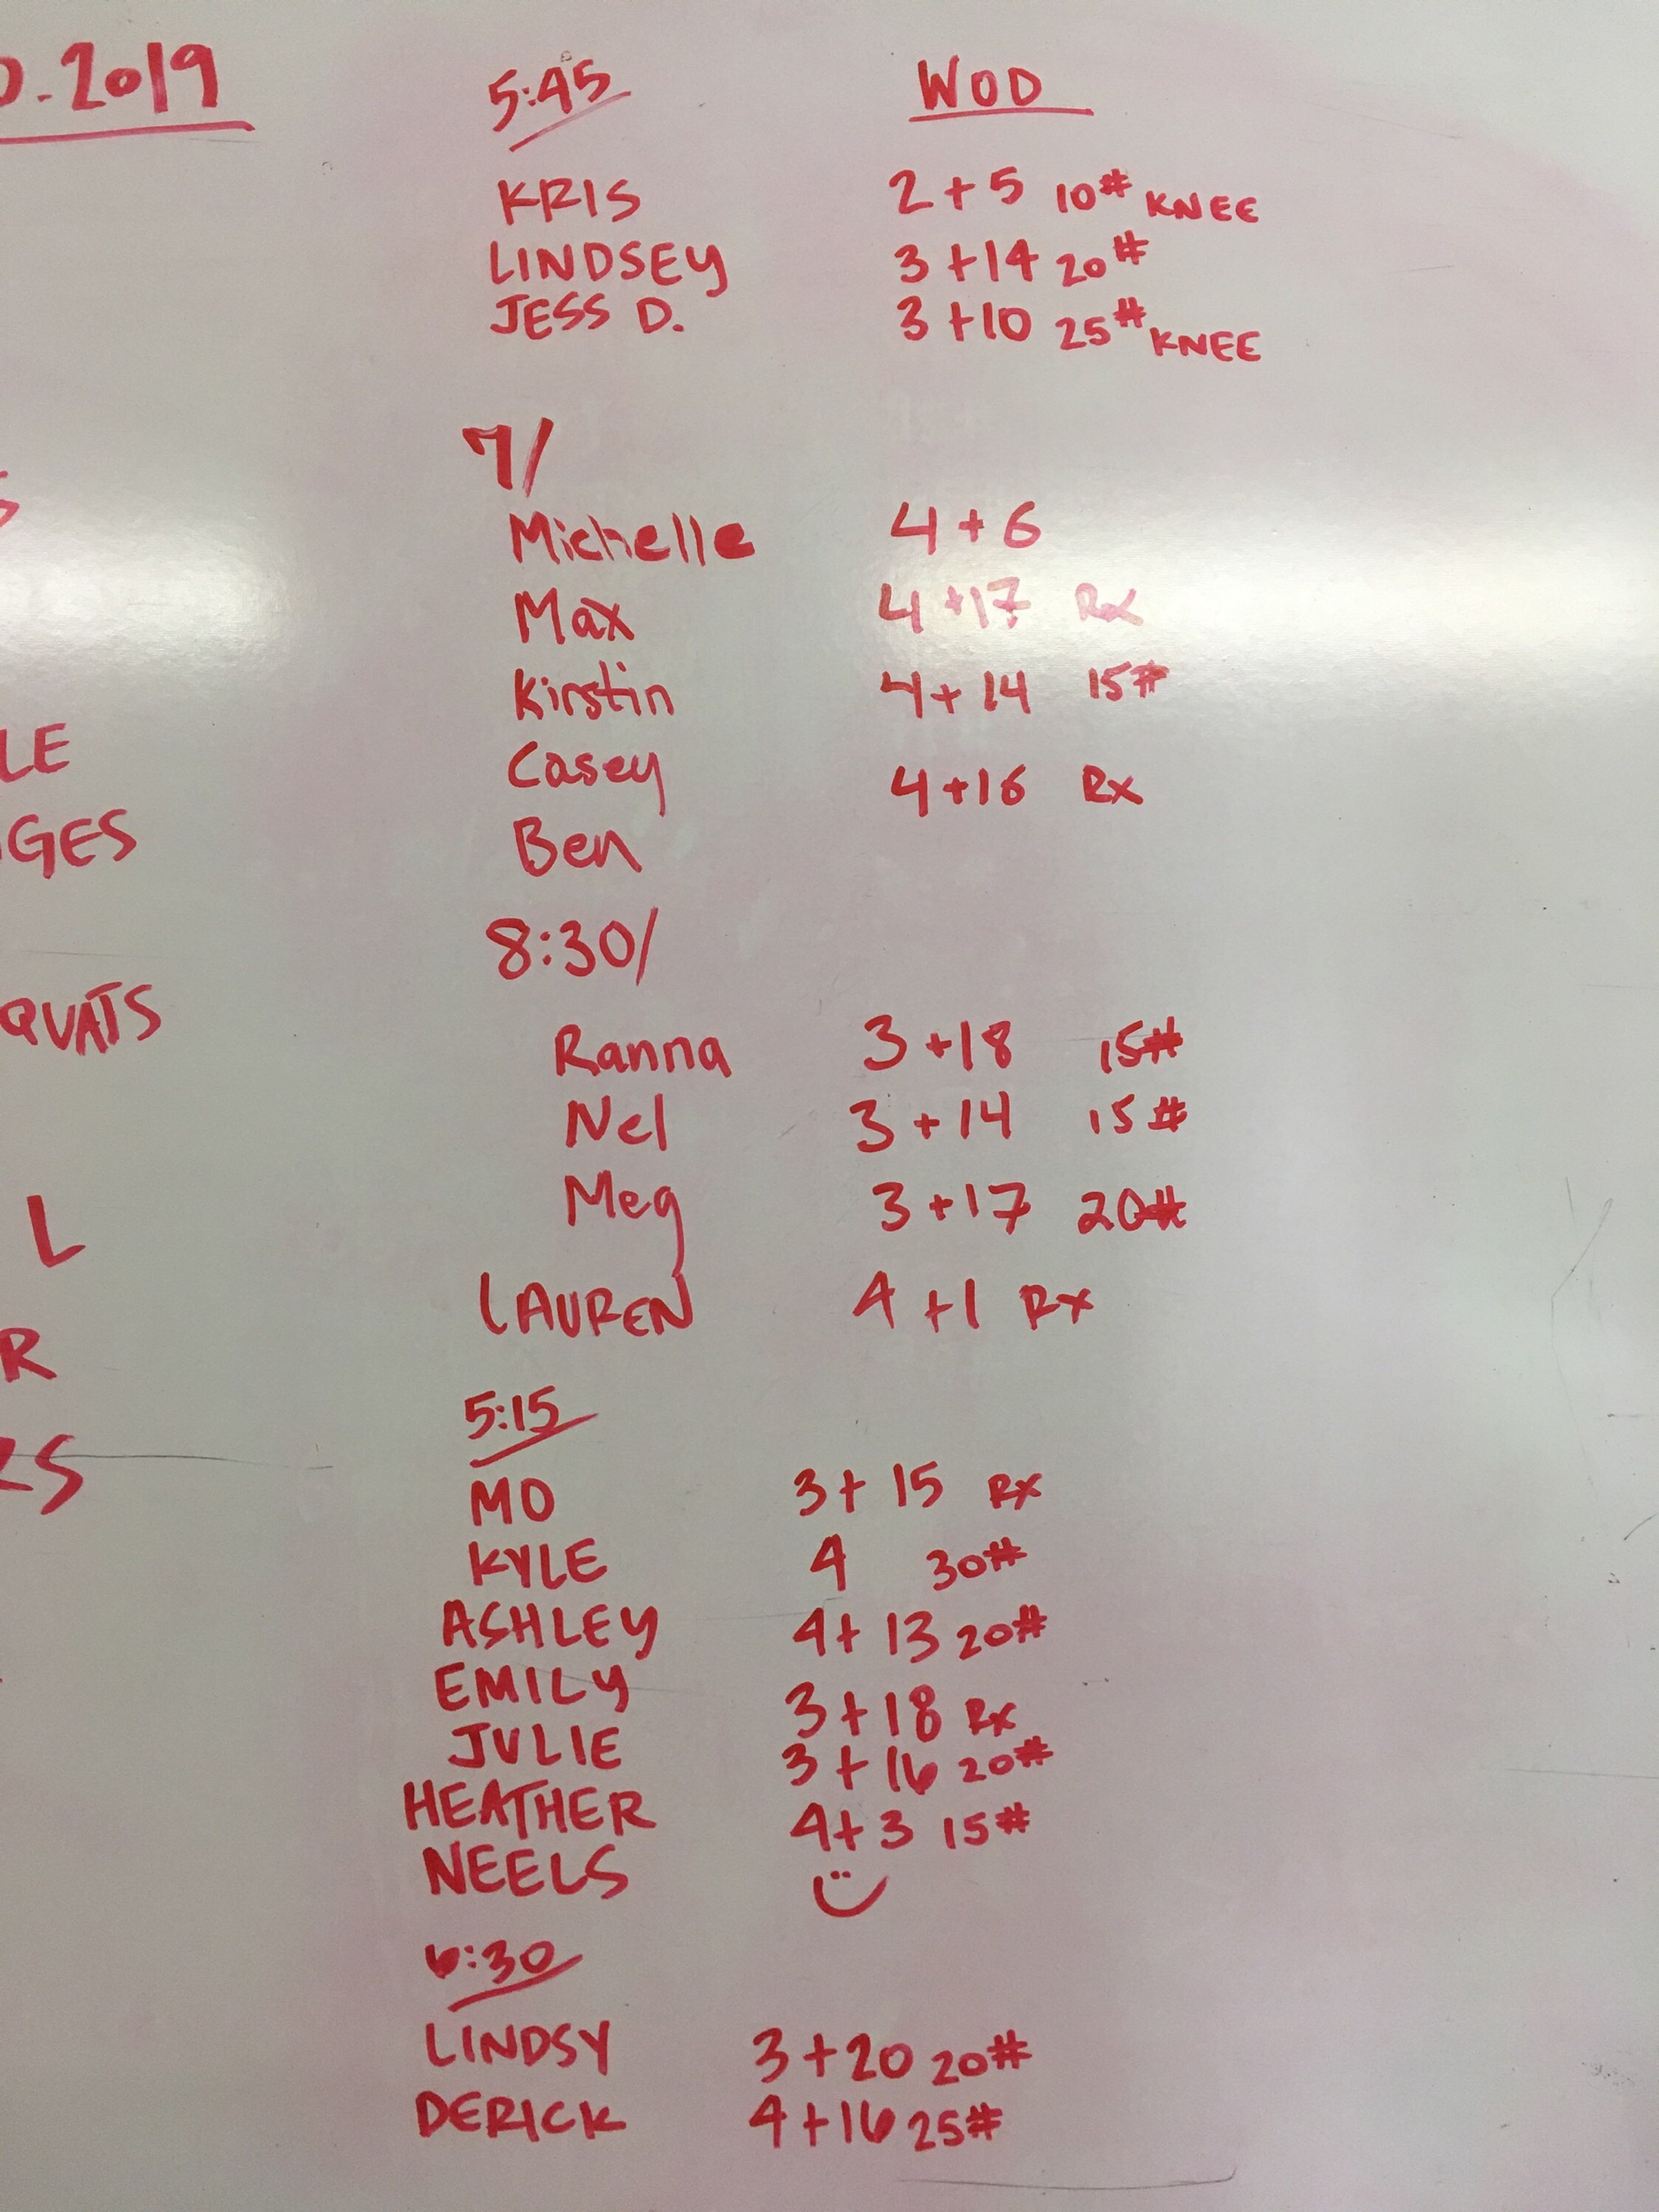 0.2019
S
LE
GES
QUATS
L
R
RS
5:45 WOD
KRIS 2+5 10# KNEE
LINDSEY 3+14 20#
JESS D. 3+10 25# KNEE
7/
Michelle 4+6
Max 4+17 Rx
Kirstin 4+14 15#
Casey 4+16 Rx
Ben
8:30/
Ranna 3+18 15#
Nel 3+14 15#
Meg 3+17 20#
LAUREN 4+1 Rx
5:15
MO 3+15 Rx
KYLE 4 30#
ASHLEY 4+13 20#
EMILY 3+18 Rx
JULIE 3+16 20#
HEATHER 4+3 15#
NEELS
6:30
LINDSY 3+20 20#
DERICK 4+16 25#